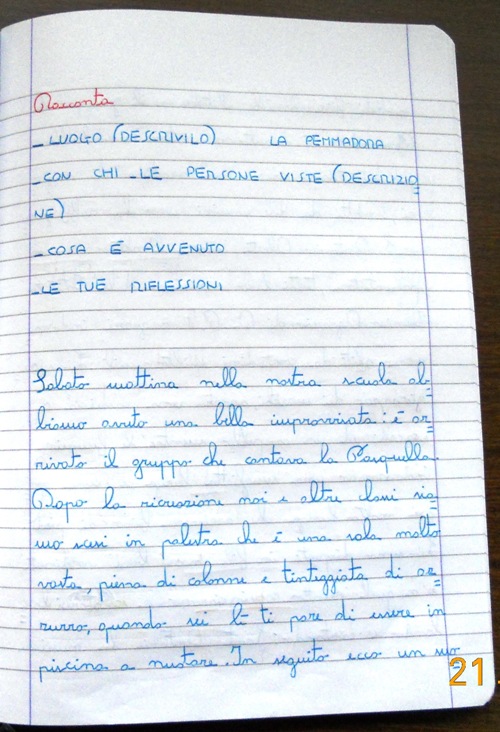 Racconta
- LUOGO (DESCRIVILO) LA PEMMADORA
- CON CHI - LE PERSONE VISTE (DESCRIZIO
NE)
- COSA È AVVENUTO
- LE TUE RIFLESSIONI
Sabato mattina nella nostra scuola ab
biamo avuto una bella improvvisata: è ar
rivato il gruppo che cantava la Pasquella.
Dopo la ricreazione noi e altre classi sia
mo scesi in palestra che è una sala molto
vasta, piena di colonne e tinteggiata di az
zurro, quando sei lì ti pare di essere in
piscina a nuotare. In seguito ecco un suo
21